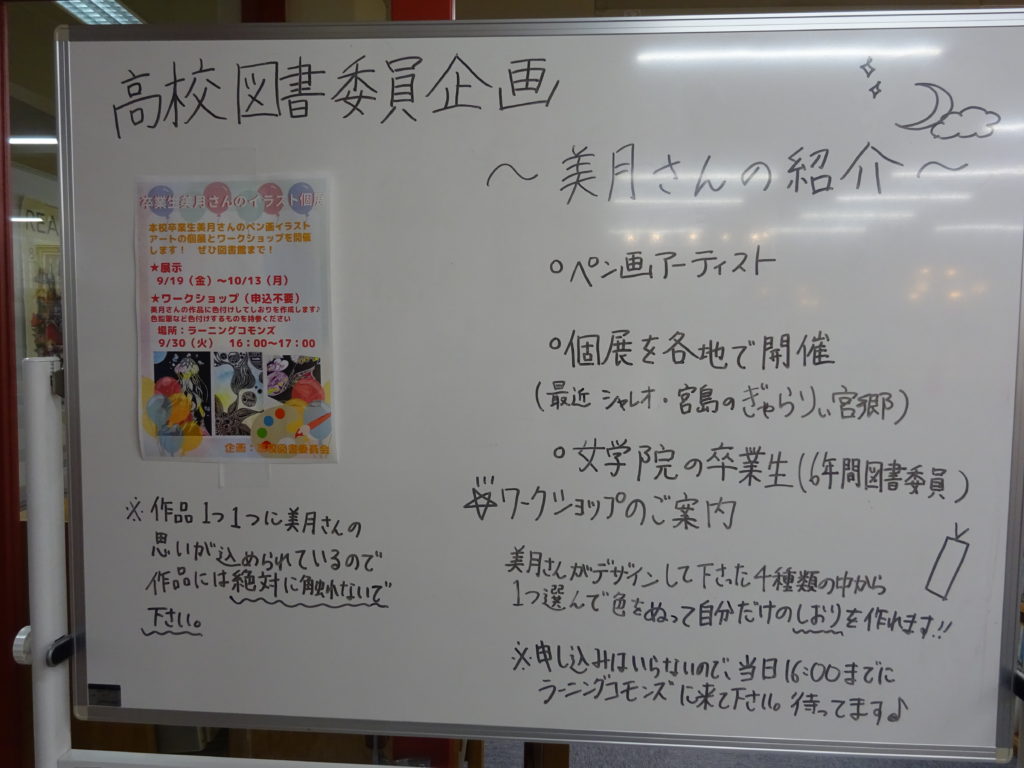 高校図書委員企画
～美月さんの紹介～
卒業生美月さんのイラスト個展
本校卒業生美月さんのペン画イラスト
アートの個展とワークショップを開催
します！ ぜひ図書館まで！
★展示
9/19（金）～10/13（月）
★ワークショップ（申込不要）
美月さんの作品に色付けしてしおりを作成します♪
色鉛筆など色付けするものを持参ください
場所：ラーニングコモンズ
9/30（火） 16：00～17：00
企画：高校図書委員会
※作品1つ1つに美月さんの
思いが込められているので
作品には絶対に触れないで
下さい。
○ペン画アーティスト
○個展を各地で開催
（最近 シャレオ・宮島のぎゃらりぃ宮郷）
○女学院の卒業生（6年間図書委員）
☆ワークショップのご案内
美月さんがデザインして下さった4種類の中から
1つ選んで色をぬって自分だけのしおりを作れます!!
※申し込みはいらないので、当日16:00までに
ラーニングコモンズに来て下さい。待ってます♪